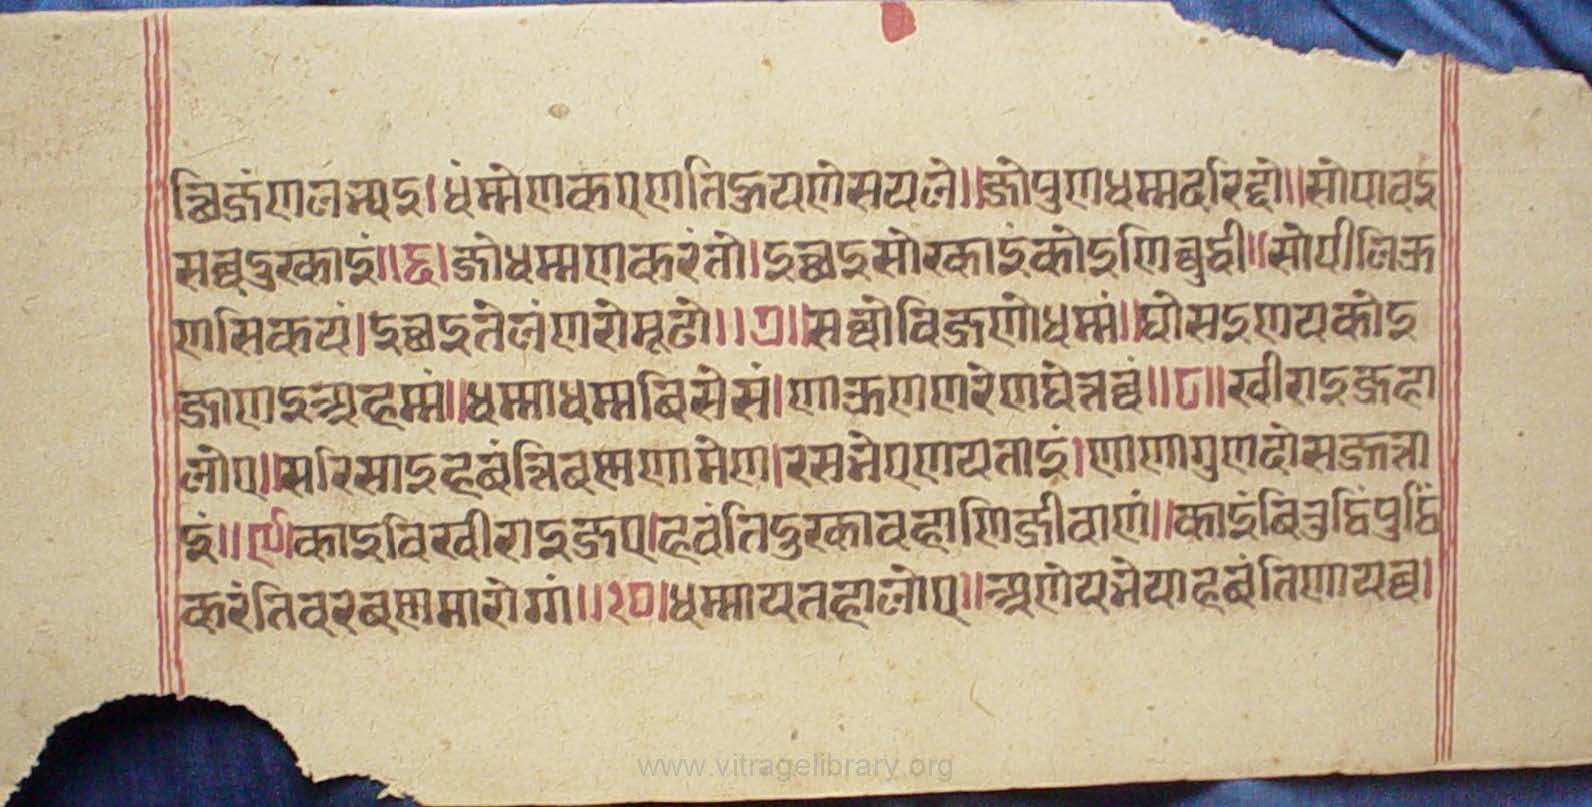 च्चिऊंणलब्भइ।धंम्मेणकएणतिऊयणेसयले॥जोपुणधम्मदरिद्दो॥सोपावइ
सव्वदुरकाइं॥६।जोधम्मणकरंतो।इच्छइसोरकाइंकोइणिव्वुद्दी॥सोपीलिऊ
णसिकयं।इच्छइतेलंणरोमूढो॥७॥सव्वोविजणोधम्मं॥घोसइणयकोइ
जाणइअहम्मं॥धम्माधम्मबिसेसं।णाऊणणरेणघेत्तव्वं॥८॥खीराइजहा
लोए॥सरिसाइहवंत्तिवस्मणामेण।रसभेएणयताइं।णाणागुणदोसजुत्ता
इं॥९।काइविखीराइजए।हवंतिदुरकावहाणिजीवाणं॥काइंबितुट्ठिंपुट्ठिं
करंतिवरबस्ममारोगां॥१०।धम्मायतहालोए॥अणेयभेयाहवंतिणायव्व।
www.vitragelibrary.org